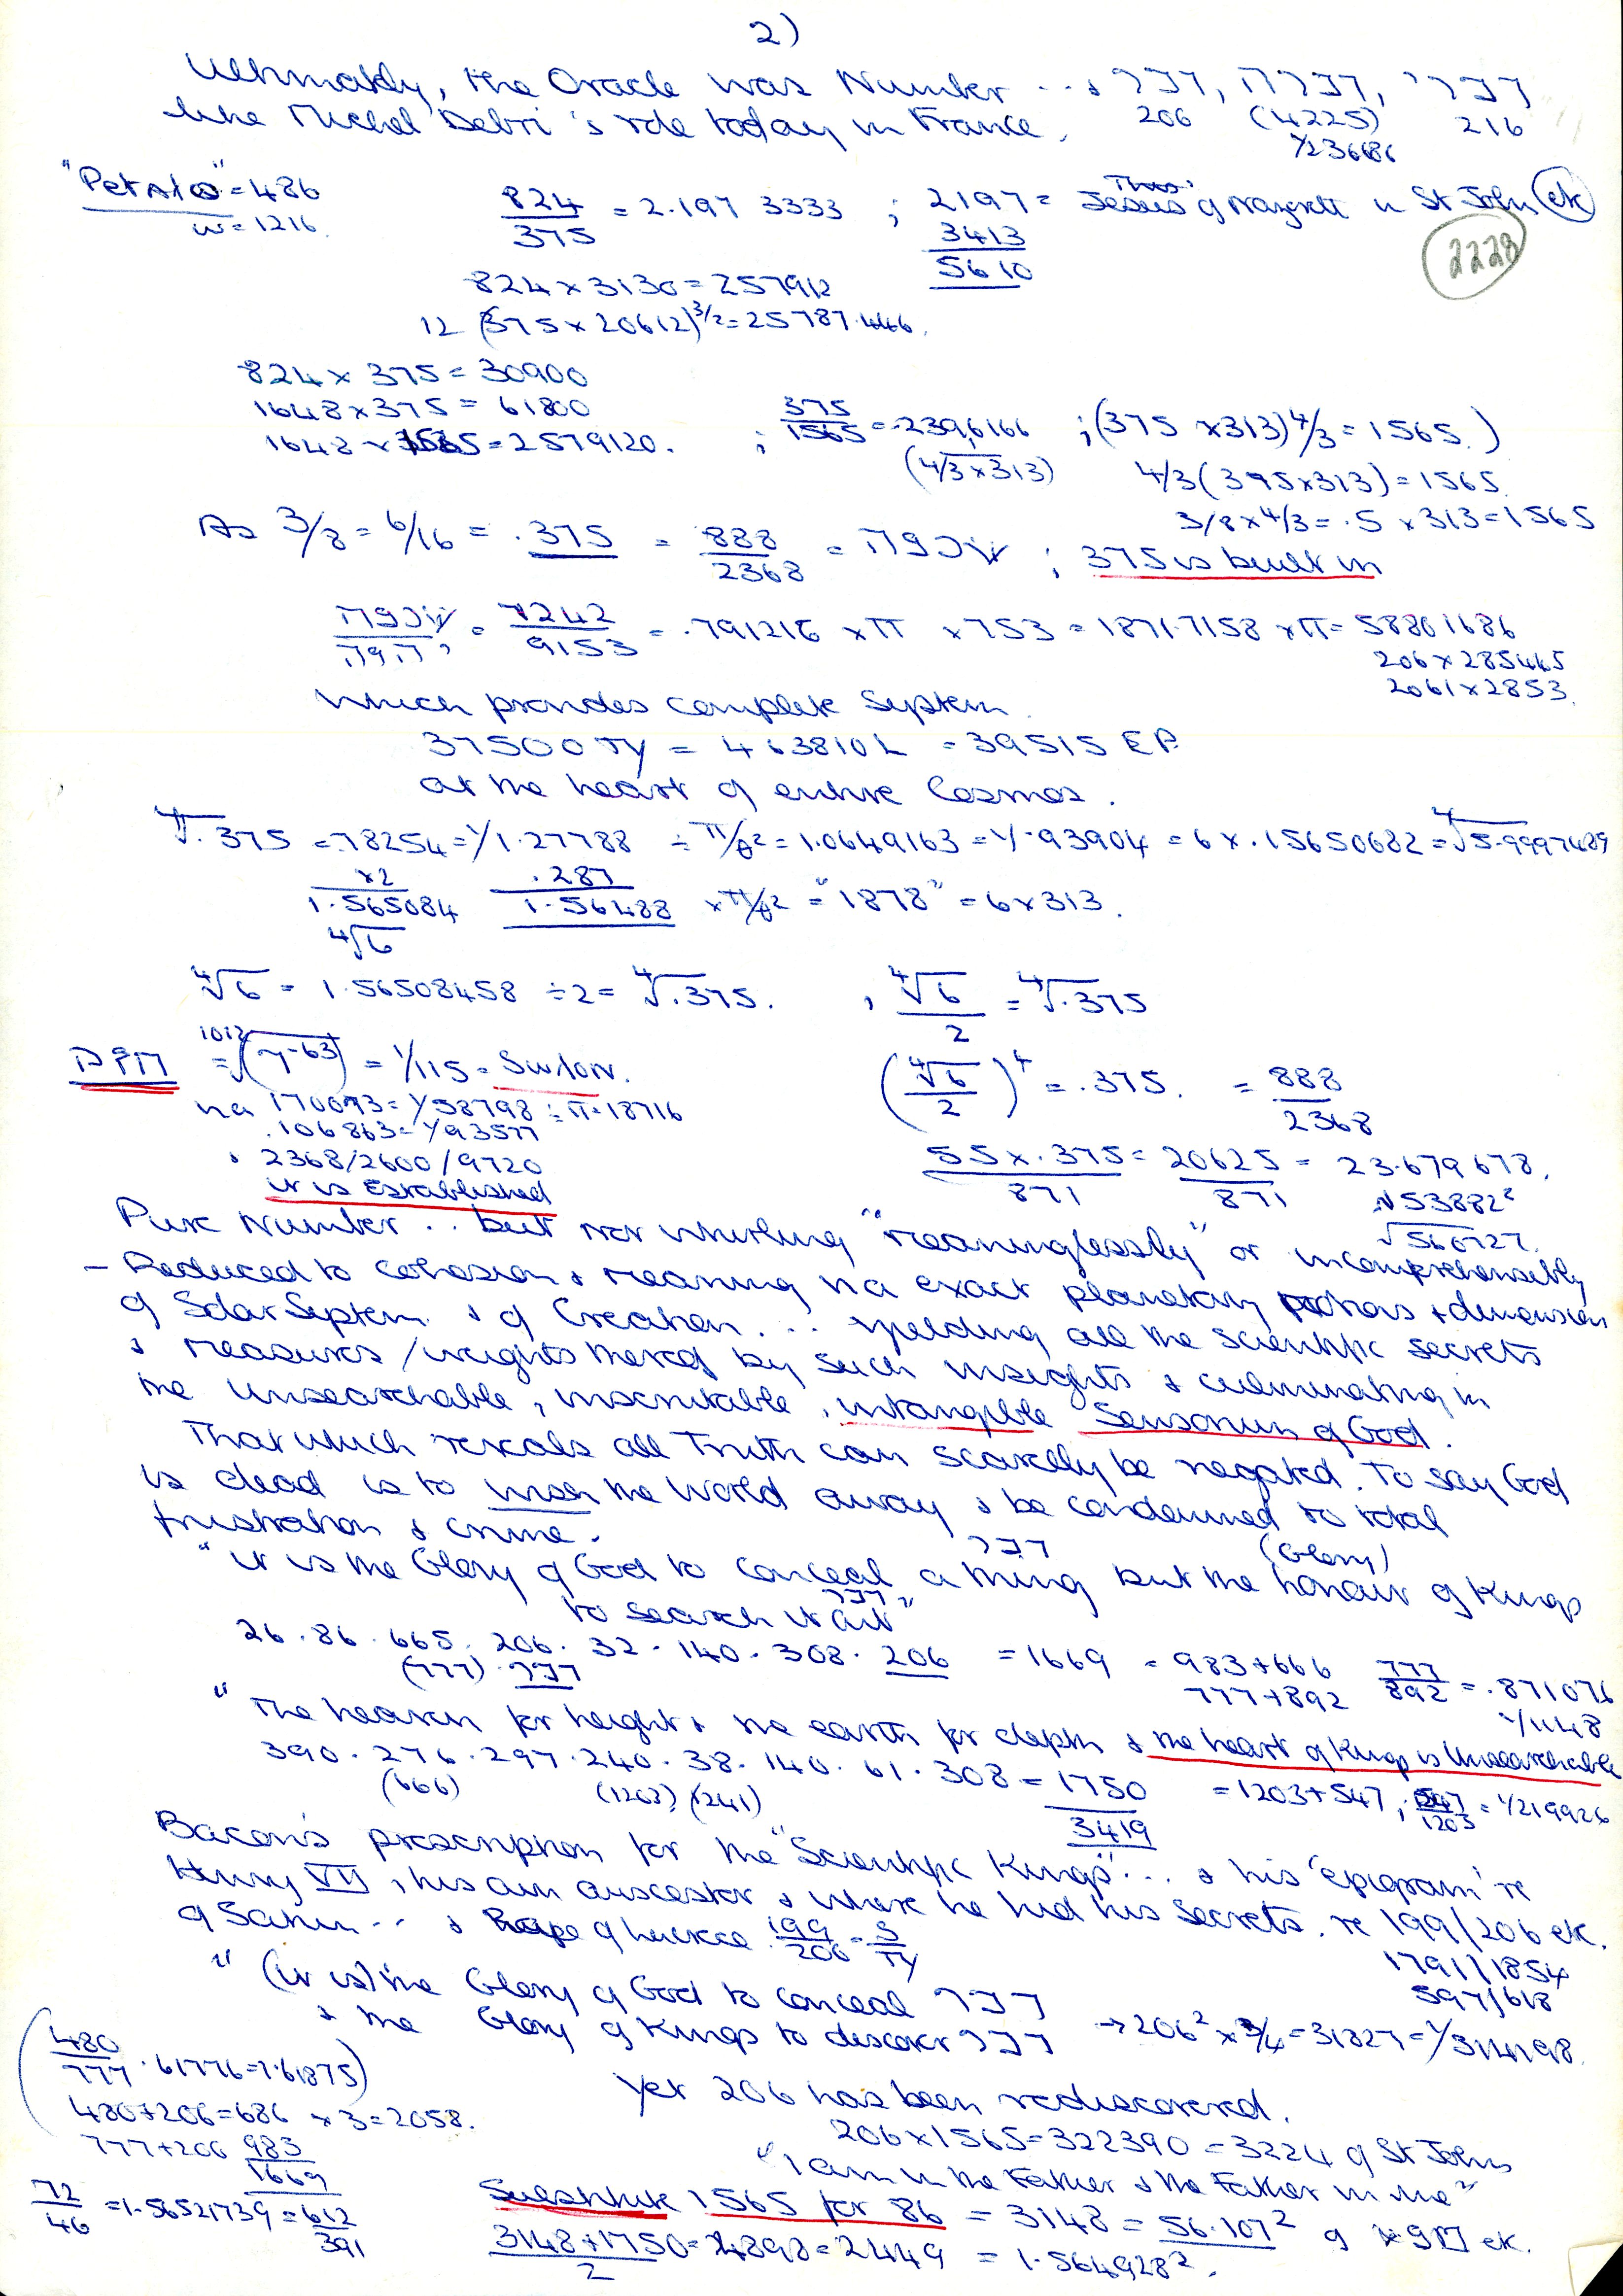 2)
Ultimately, the Oracle was Number ... & דבר, דברה, דברי
like Michel Debri's role today in France. 206 (4225) 216
1/23666
"Petalo" = 486
w = 1216.
824/375 = 2.197 3333 ; 2197 = Jesus of Nazareth in St John etc
3413
5610
2228
824 x 3130 = 257912
12 (375 x 20612)^3/2 = 25787.446.
824 x 375 = 30900
1648 x 375 = 61800
1648 x 1565 = 2579120. ; 375/1565 = .2396166 ; (375 x 313) 4/3 = 1565.)
(4/3 x 313) 4/3 (375 x 313) = 1565.
3/8 x 4/3 = .5 x 313 = 1565
As 3/8 = 6/16 = .375 = 888/2368 = ; 375 is built in
= 7242/9153 = .791216 x π x 753 = 1871.7158 x π = 58801686
206 x 285465
2061 x 2853.
Which provides complete System
37500 Ty = 463810L = 39515 E.P.
at the heart of entire Cosmos.
∜.375 = .78254 = 1/1.27788 ÷ π/θ² = 1.0649163 = 1/.93904 = 6 x .15650682 = ∜5.9997489
x2 .287
1.565084 1.56488 x π/θ² = "1878" = 6 x 313.
∜6
∜6 = 1.56508458 ÷ 2 = ∜.375. , ∜6/2 = ∜.375
= 1/115 = (∜6/2)^4 = .375. = 888/2368
via 170073 = 1/58798 ÷ π = 18716
.106863 = 1/93577
& 2368/2600/9720 55 x .375/871 = 20625/871 = 23.679678.
it is Established √53882²
√560727.
Pure Number .. but not whirling "meaninglessly" or incomprehensibly
- Reduced to cohesion & meaning via exact planetary motions & dimension
of Solar System & of Creation ... yielding all the scientific secrets
& measures/weights thereof by such insights & culminating in
the Unsearchable, inscrutable, intangible Sensorium of God.
That which reveals all Truth can scarcely be negated. To say God
is dead is to wish the World away & be condemned to total
frustration & crime.
דבר (Glory)
"it is the Glory of God to conceal a thing but the honour of Kings
דבר
to search it out"
26 . 86 . 665 . 206 . 32 . 140 . 308 . 206 = 1669 = 983 + 666 777/892 = .871076
(777) דבר 777 + 892 1/1148
"The heaven for height & the earth for depth & the heart of Kings is Unsearchable
390 . 276 . 297 . 240 . 38 . 140 . 61 . 308 = 1750 = 1203 + 547 ; 547/1203 = 1/219926
(666) (1203) (241) 3419
Bacon's prescription for the "Scientific Kings" ... & his 'epigram' re
Henry VII, his own ancestor & where he hid his secrets. re 199/206 etc.
of Saturn .. & Rape of Lucrece 199/206 = S/Ty
1791/1854
597/618
" (it is) the Glory of God to conceal דבר
& the Glory of Kings to discover דבר → 206² x 3/4 = 31827 = 1/314198.
(480/777 . 61776 = 1.61875)
Yet 206 has been rediscovered.
480 + 206 = 686 x 3 = 2058.
206 x 1565 = 322390 = 3224 of St John
777 + 206 983
1669
"I am in the Father & the Father in Me"
72/46 = 1.56521739 = 612/391
Substitute 1565 for 86 = 3148 = 56.107² of etc.
3148 + 1750/2 = 4898 = 2449 = 1.564928².